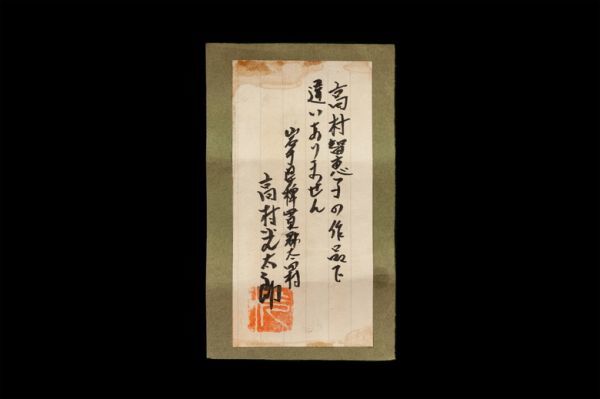 高村智恵子の作品に
違いありません
岩手県稗貫郡太田村
高村光太郎